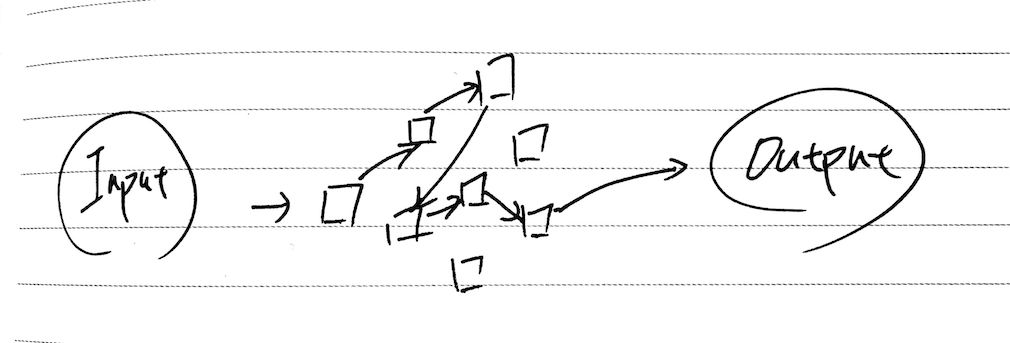 Input
Output